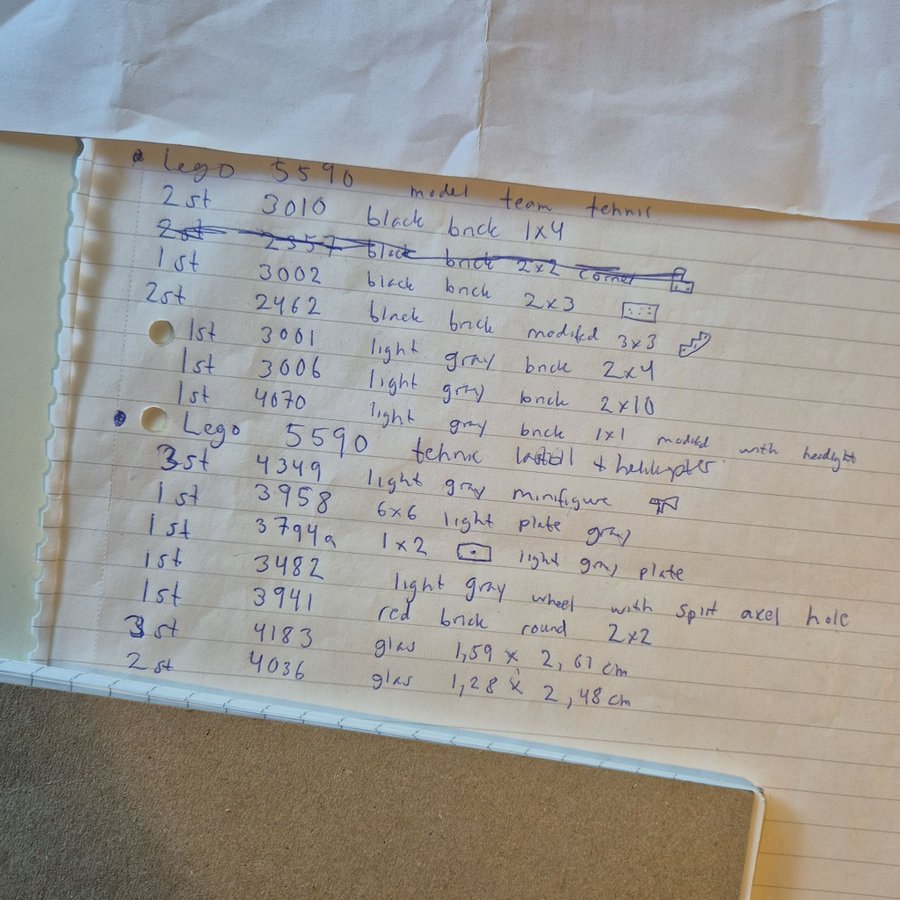 Lego 5590 model team tehnic
2 st 3010 black brick 1x4
2st 2357 black brick 2x2 corner
1 st 3002 black brick 2x3
2st 2462 black brick modifed 3x3
1st 3001 light gray brick 2x4
1st 3006 light gray brick 2x10
1st 4070 light gray brick 1x1 modifed with headlight
Lego 5590 tehnic + helikopter
3st 4349 light gray minifigure
1 st 3958 6x6 light plate gray
1 st 3794a 1x2 light gray plate
1st 3482 light gray wheel with split axel hole
1st 3941 red brick round 2x2
3 st 4183 glas 1,59 x 2,61 cm
2 st 4036 glas 1,28 x 2,48 cm